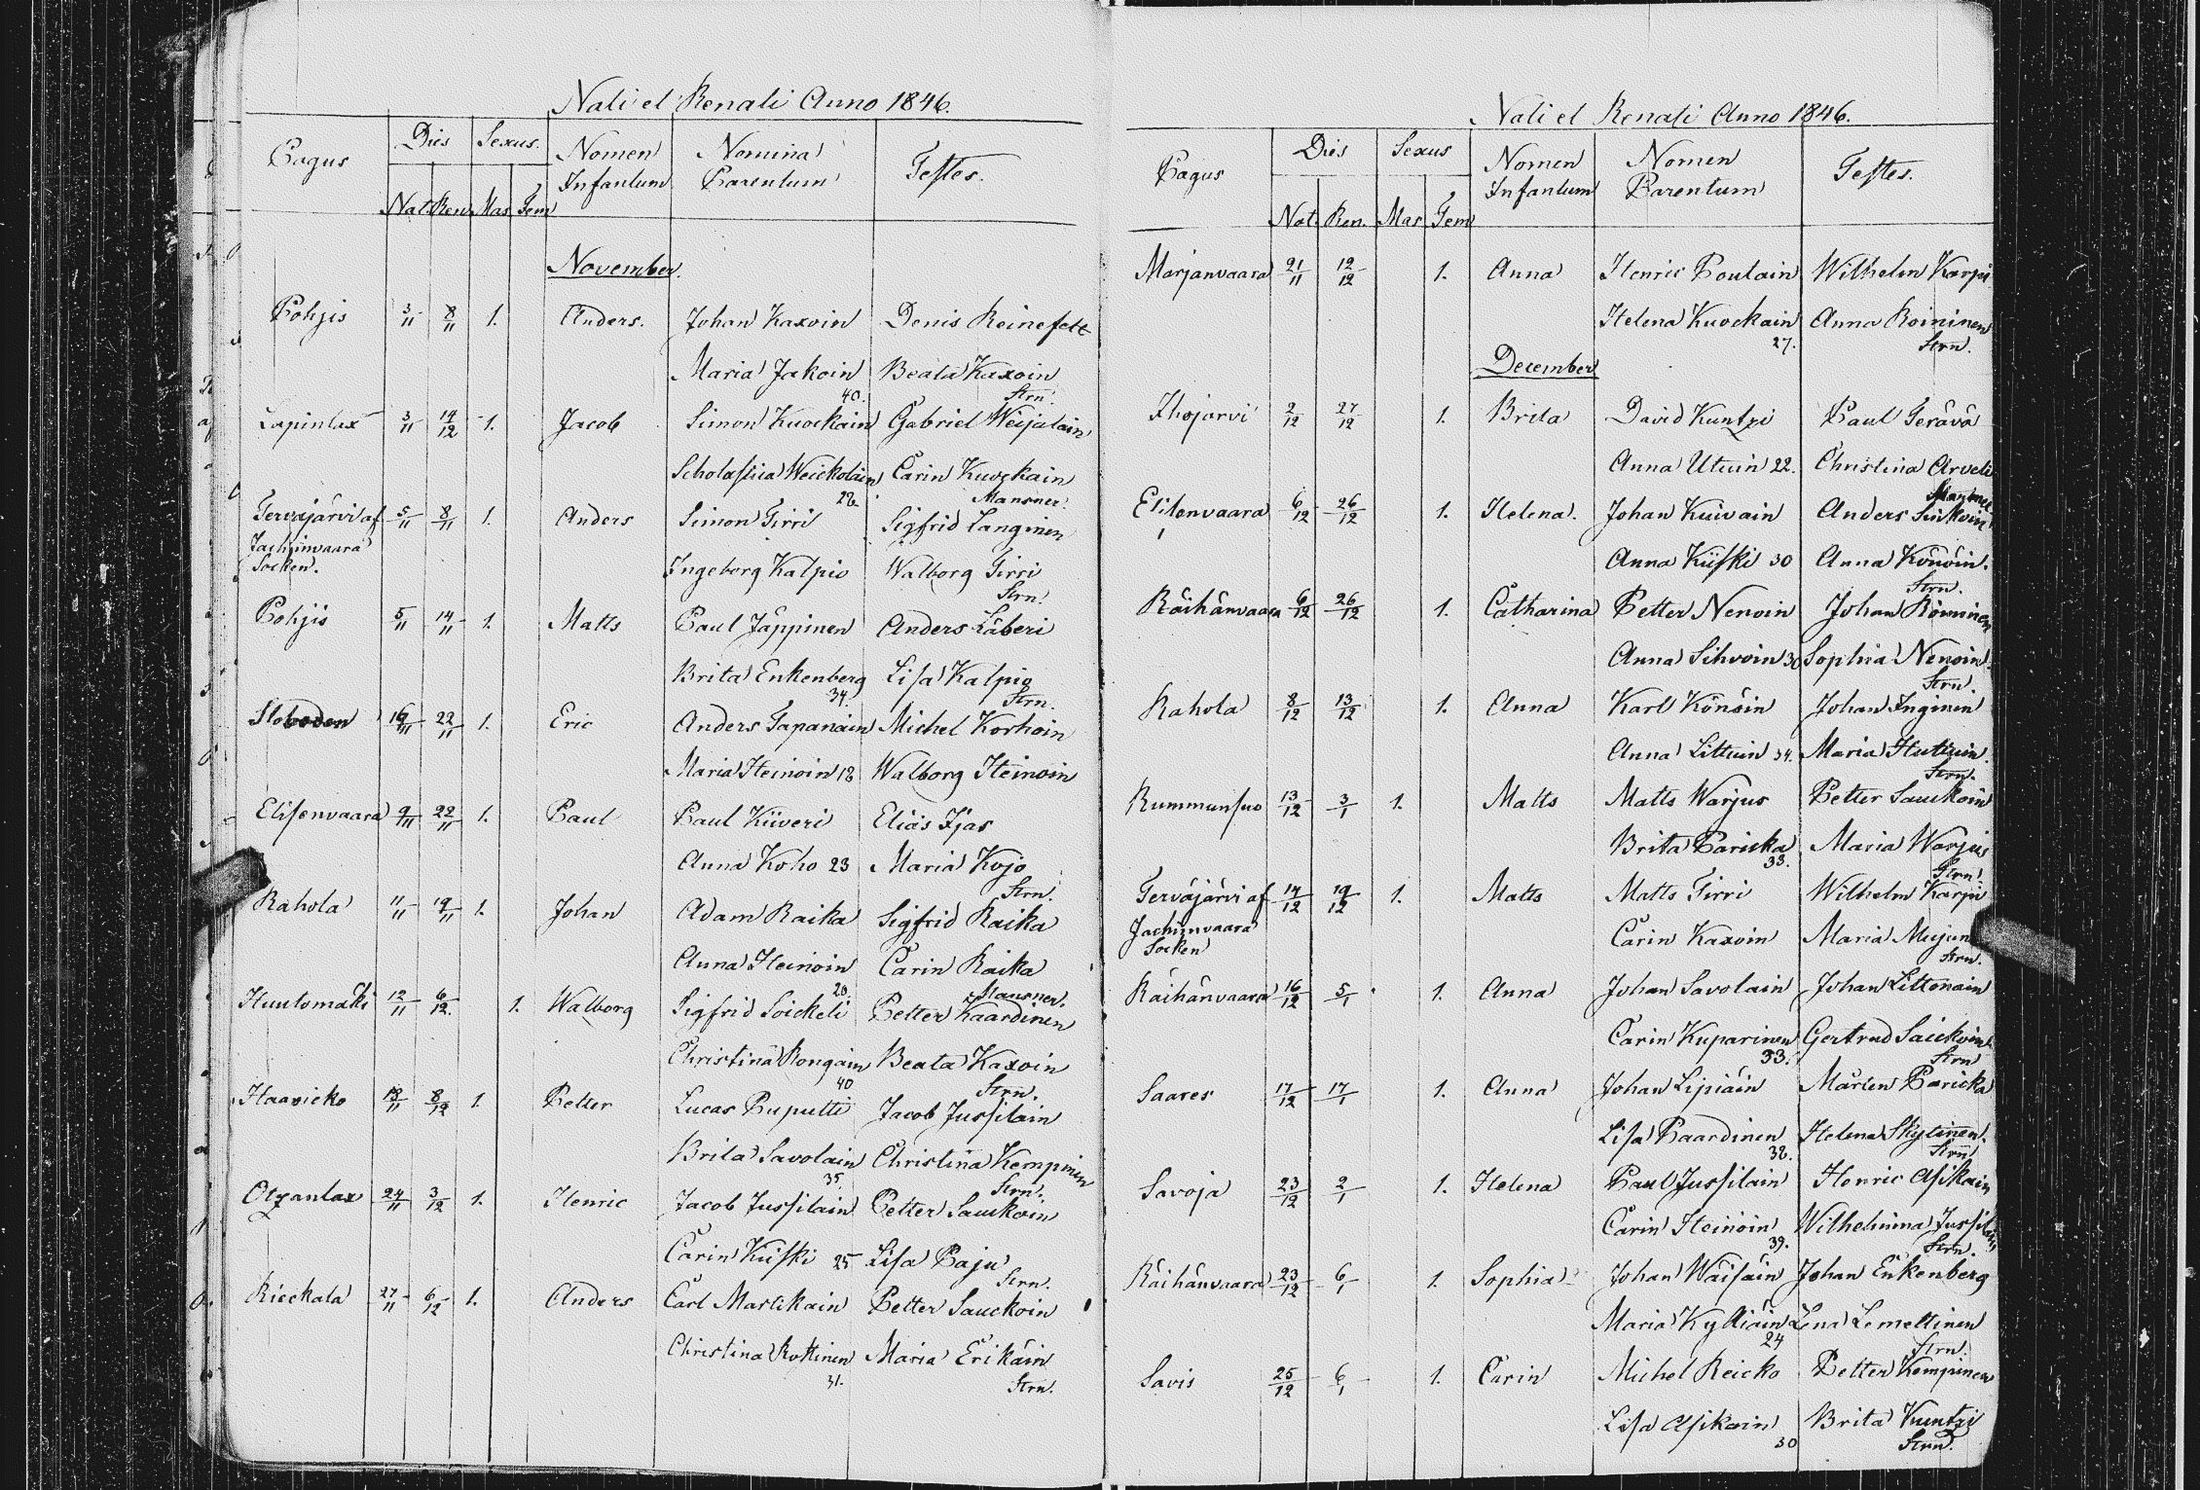 Nati et Renati Anno 1846.
Pagus Dies Sexus. Nomen Infantum Nomina Parentum Testes.
Nat. Ren. Mas. Fem
November.
Pohjis 3/11 8/11 1. Anders. Johan Kaxoin Denis Reinefelt
Maria Jakoin 40. Beata Kaxoin Strn.
Lapinlax 3/11 14/12 1. Jacob Simon Kuockain Gabriel Weijalain
Scholastica Weickolain 22. Carin Kuockain Mansner.
Tervajärvi af Jachimvaara Socken. 5/11 8/11 1. Anders Simon Tirri Sigfrid Langinen
Ingeborg Kalpio Walborg Tirri Strn.
Pohjis 5/11 14/11 1. Matts Paul Jäppinen Anders Käberi
Brita Enkenberg 34. Lisa Kalpio Strn.
Sloboden 22/11 1. Eric Anders Tapanain Michel Korhoin
Maria Heinoin 18 Walborg Heinoin
Elisenvaara 9/11 22/11 1. Paul Paul Kiiveri Elias Ijas
Anna Koho 23 Maria Kojo Strn.
Rahola 11/11 19/11 1. Johan Adam Raika Sigfrid Raika
Anna Heinoin 20. Carin Raika Mansner.
Huutomäki 12/11 6/12. 1. Walborg Sigfrid Soickeli Petter Kaardinen
Christina Rongain 40 Beata Kaxoin Strn.
Haavicko 8/12 1. Petter Lucas Puputti Jacob Jussilain
Brita Savolain 35. Christina Kempinen Strn.
Otzanlax 24/11 3/12 1. Henric Jacob Jussilain Petter Sauckoin
Carin Kiiski 25 Lisa Paju Strn.
Rieckala 27/11 6/12 1. Anders Carl Martikain Petter Sauckoin
Christina Rottinen 31. Maria Erikäin Strn.
Nati et Renati Anno 1846.
Pagus Dies Sexus Nomen Infantum Nomen Parentum Testes.
Nat. Ren. Mas Fem
Marjanvaara 21/11 12/12 1. Anna Henric Poulain Wilhelm Karpi
Helena Kuockain 27. Anna Roininen Strn.
December
Ihojarvi 2/12 27/12 1. Brita David Kuntzi Paul Terävä
Anna Utuin 22. Christina Arveli
Elisenvaara 6/12 26/12 1. Helena. Johan Kuivain Anders
Anna Kiiski 30 Anna Strn.
Räihänvaara 6/12 26/12 1. Catharina Petter Nenoin Johan Rönninen
Anna Sihvoin 30 Sophia Nenoin. Strn.
Rahola 8/12 13/12 1. Anna Karl Könöin Johan Inginen
Anna Littuin 34. Maria Strn.
Rummunsuo 13/12 3/1 1. Matts Matts Warjus Petter Sauckoin
Brita Paricka 33. Maria Warjus Strn.
Tervajärvi af Jachimvaara Socken 14/12 19/12 1. Matts Matts Tirri Wilhelm Karpi
Carin Kaxoin Maria Strn.
Räihänvaara 16/12 5/1 1. Anna Johan Savolain Johan Littonain
Carin Kuparinen 33. Gertrud Strn
Saares 17/12 17/1 1. Anna Johan Lipiäin Mårten Paricka
Lisa Paardinen 38. Helena Skytinen. Strn
Savoja 23/12 2/1 1. Helena Paul Jussilain Henric Asikain
Carin Heinoin 39. Wilhelmina Jussilain Strn.
Räihänvaara 23/12 6/1 1. Sophia Johan Wäisäin Johan Enkenberg
Maria Kylliäin 24 Lena Lemeltinen Strn.
Savis 25/12 6/1 1. Carin Michel Reicko Petter Kempinen
Lisa Asikain 30 Brita Kuntzi Strn.